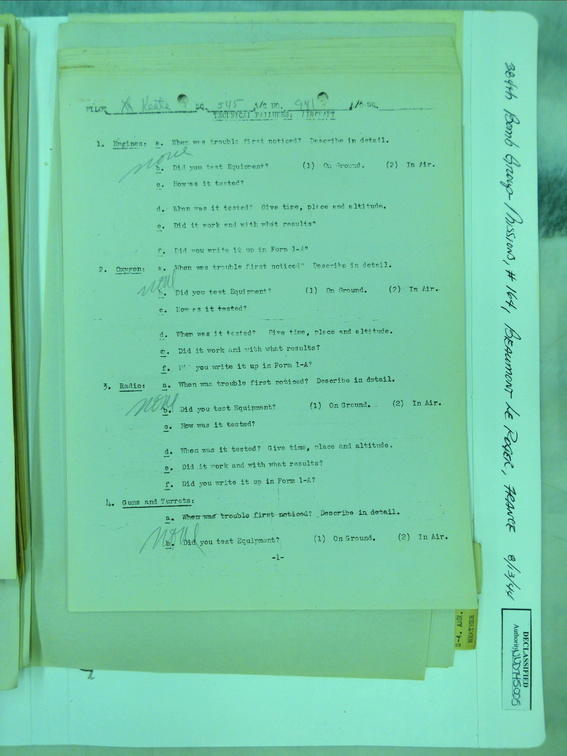 PILOT Keate SQ. 545 A/C NO. 941
TECHNICAL FAILURES, AIRCRAFT
1. Engines: a. When was trouble first noticed? Describe in detail.
none
b. Did you test Equipment? (1) On Ground. (2) In Air.
c. How was it tested?
d. When was it tested? Give time, place and altitude.
e. Did it work and with what results?
f. Did you write it up in Form 1-A?
2. Oxygen: a. When was trouble first noticed? Describe in detail.
none
b. Did you test Equipment? (1) On Ground. (2) In Air.
c. How as it tested?
d. When was it tested? Give time, place and altitude.
e. Did it work and with what results?
f. you write it up in Form 1-A?
3. Radio: a. When was trouble first noticed? Describe in detail.
none
b. Did you test Equipment? (1) On Ground. (2) In Air.
c. How was it tested?
d. When was it tested? Give time, place and altitude.
e. Did it work and with what results?
f. Did you write it up in Form 1-A?
4. Guns and Turrets:
a. When was trouble first noticed? Describe in detail.
none
b. Did you test Equipment? (1) On Ground. (2) In Air.
-1-
384th Bomb Group - Missions, # 164, BEAUMONT LE ROGER, FRANCE 8/13/44
DECLASSIFIED
Authority NND745005